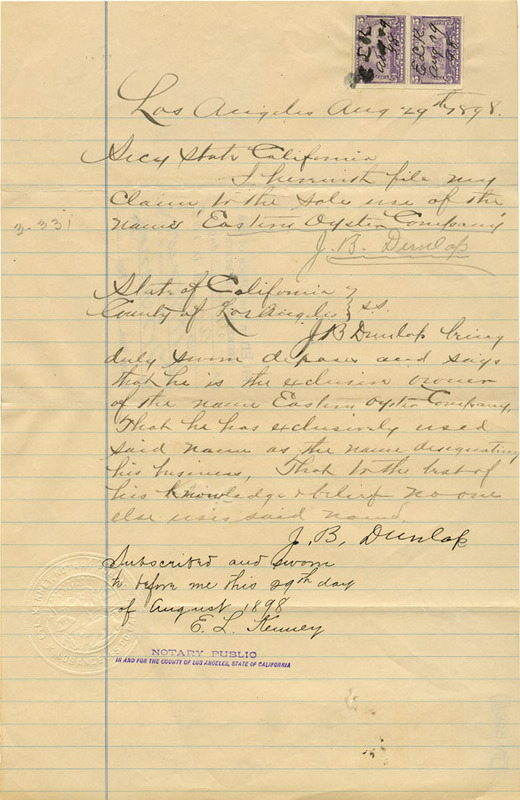 E L K
Aug 29
98
E L K
Aug 29
98
Los Angeles Aug 29th 1898.
Secy State California
I herewith file my
Claim to the sole use of the
name "Eastern Oyster Company"
J. B. Dunlop
2-331
State of California }
County of Los Angeles } s.s.
J B Dunlop being
duly sworn deposes and says
that he is the exclusive owner
of the name Eastern Oyster Company,
That he has exclusively used
said name as the name designating
his business, That to the best of
his knowledge & belief no one
else uses said name
J. B. Dunlop
Subscribed and sworn
to before me this 29th day
of August 1898
E. L. Kenney
NOTARY PUBLIC
IN AND FOR THE COUNTY OF LOS ANGELES, STATE OF CALIFORNIA